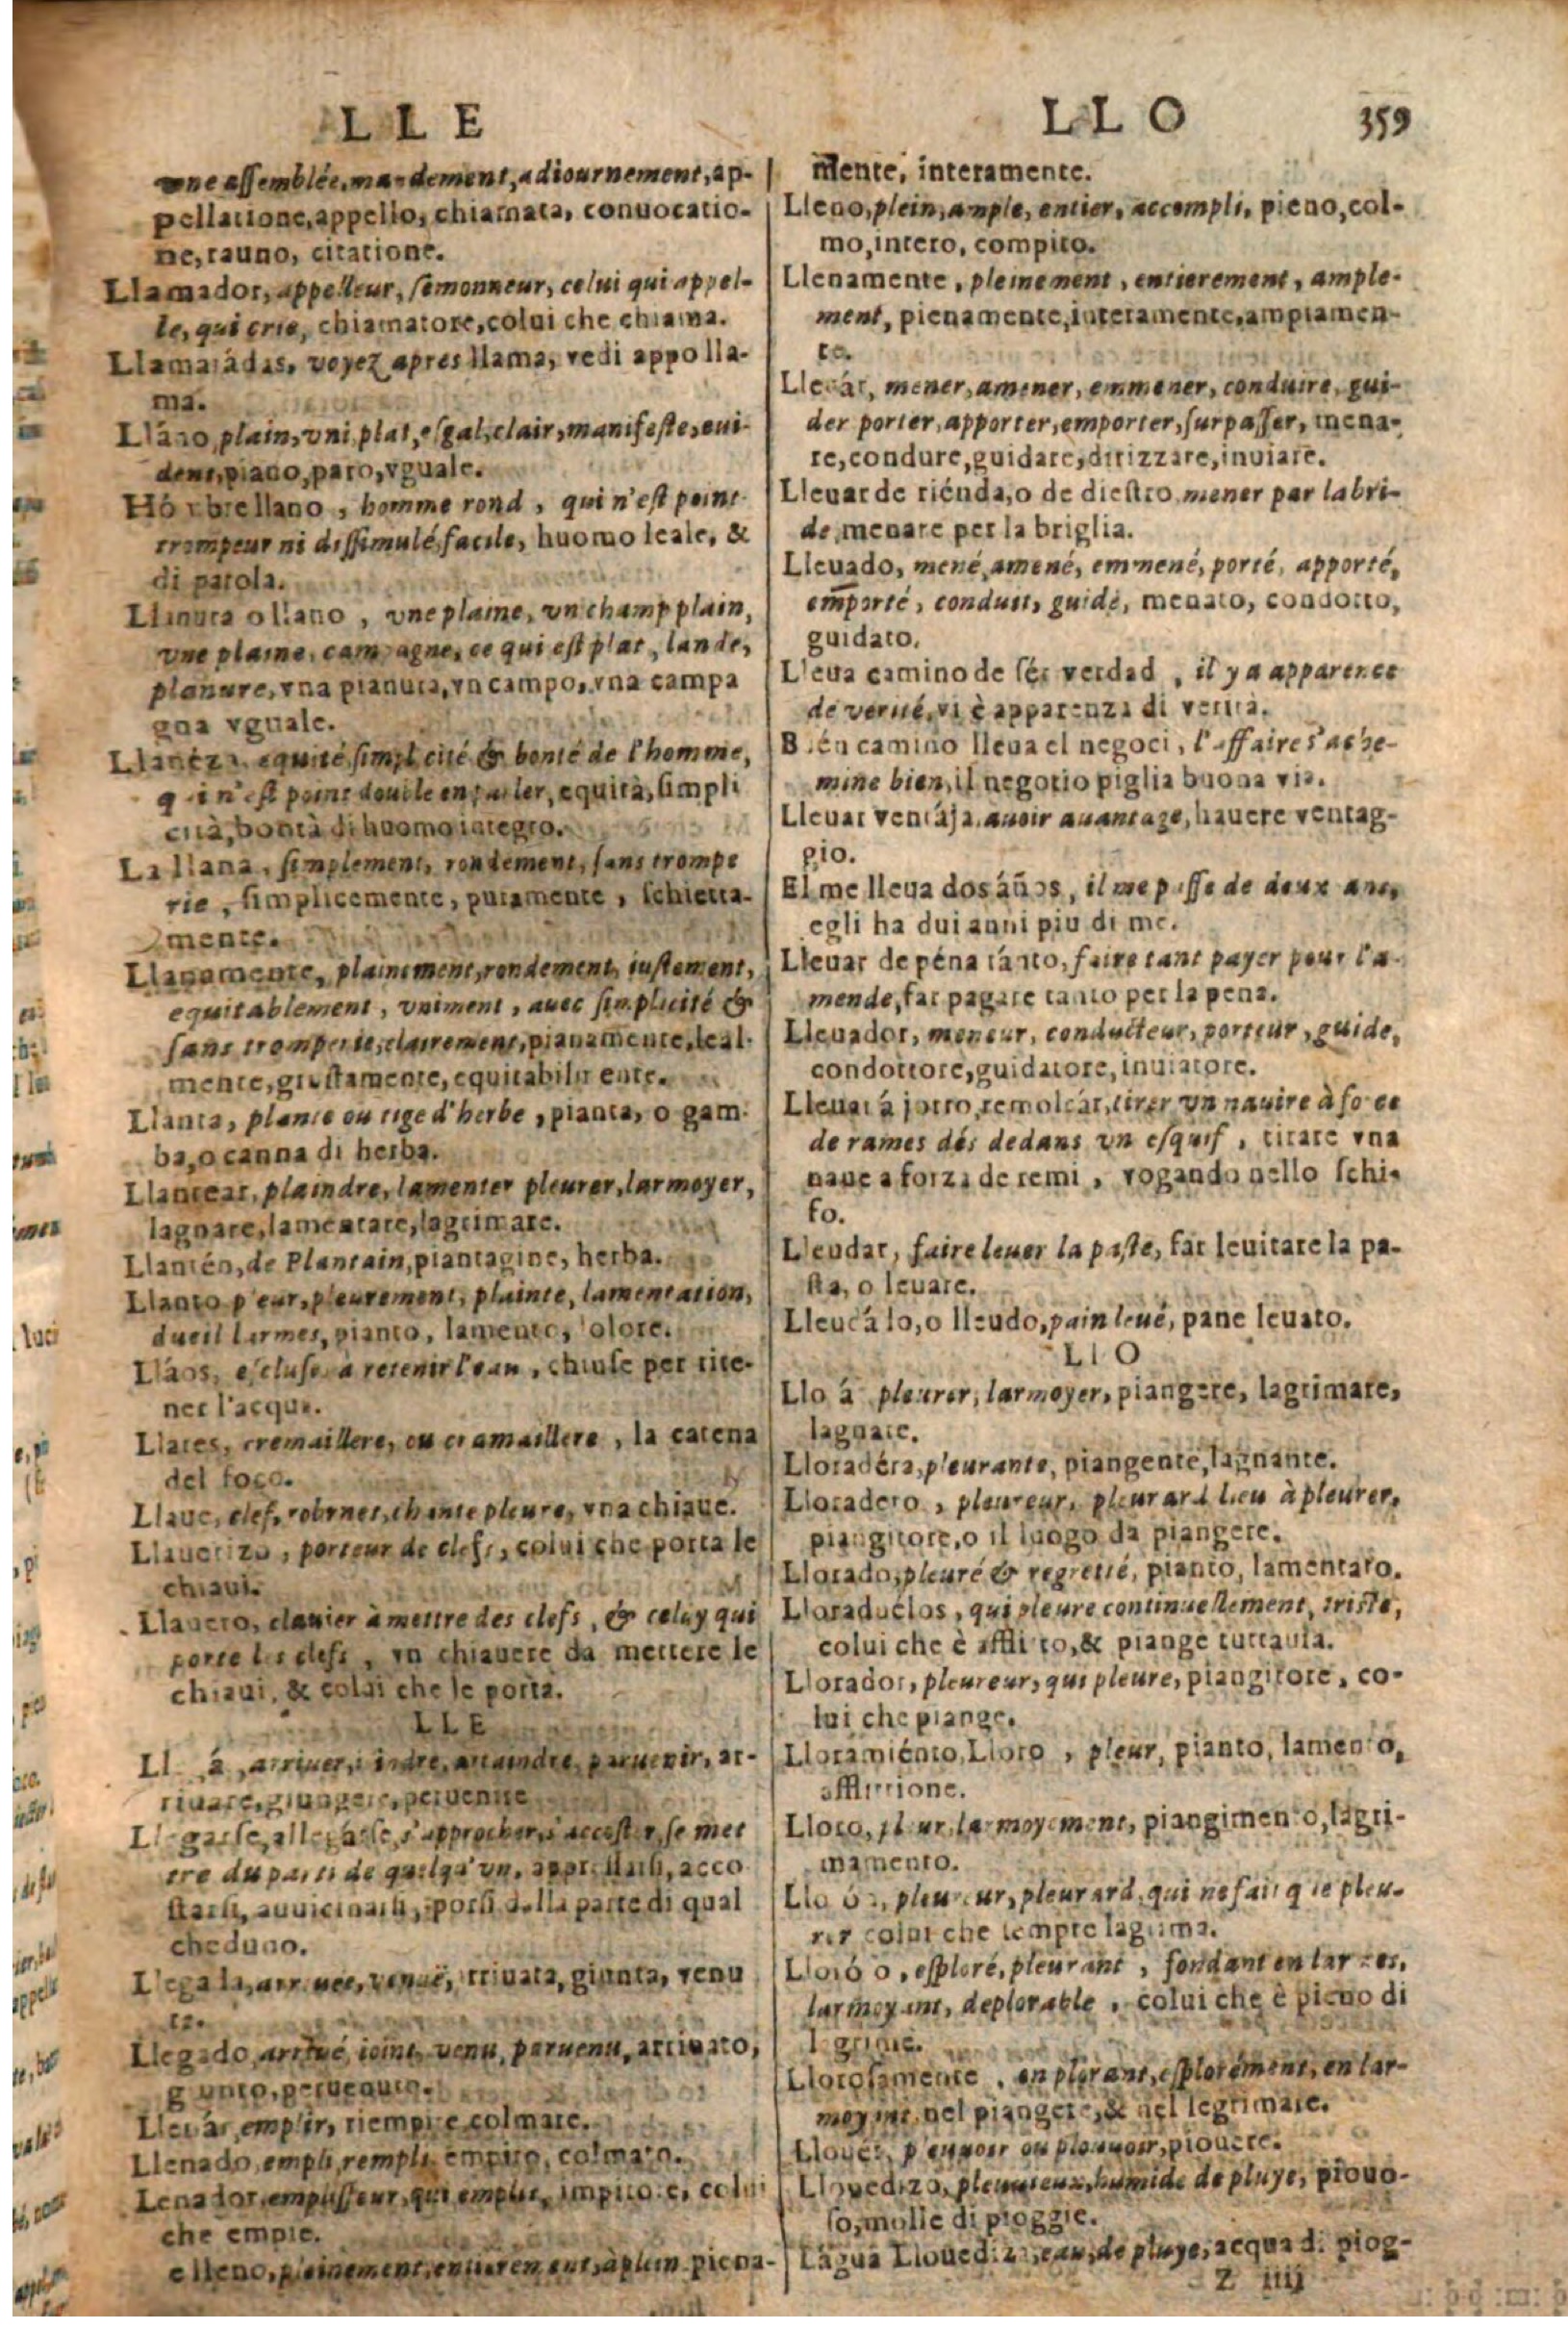 LLE
une assemblée, mandement, adiournement, ap-
pellatione, appello, chiamata, conuocatio-
ne, rauno, citatione.
Llamador, appelleur, semonneur, celui qui appel-
le, qui crie, chiamatore, colui che chiama.
Llamarádas, voyez apres llama, vedi appo lla-
ma.
Lláno, plain, vni plat, esgal, clair, manifeste, eui-
dent, piano, paro, vguale.
Hóbre llano, homme rond, qui n'est point
trompeur ni dissimulé, facile, huomo leale, &
di parola.
Llanura o llano, vne plaine, vn champ plain,
vne plaine, campagne, ce qui est plat, lande,
planure, vna pianura, vn campo, vna campa
gna vguale.
Llanéza, equité, simplicité & bonté de l'homme,
qui n'est point double en parler, equità, simpli
cità, bontà di huomo integro.
La llana, simplement, rondement, sans trompe
rie, simplicemente, puramente, schietta-
mente.
Llanamente, plainement, rondement, iustement,
equitablement, vniment, auec simplicité &
sans tromperie, clairement, pianamente, leal-
mente, giustamente, equitabilmente.
Llanta, plante ou tige d'herbe, pianta, o gam-
ba, o canna di herba.
Llantear, plaindre, lamenter pleurer, larmoyer,
lagnare, lamentare, lagrimare.
Llantén, de Plantain, piantagine, herba.
Llanto pleur, pleurement, plainte, lamentation,
dueil larmes, pianto, lamento, dolore.
Llàos, escluse à retenir l'eau, chiuse per rite-
ner l'acqua.
Llares, cremaillere, ou cramaillere, la catena
del foco.
Llaue, clef, robinet, chantepleure, vna chiaue.
Llauerizo, porteur de clefs, colui che porta le
chiaui.
Llauero, clauier à mettre des clefs, & celuy qui
porte les clefs, vn chiauere da mettere le
chiaui, & colui che le porta.
LLE
arriuer, attaindre, paruenir, ar-
riuare, giungere, peruenire
Llegarse, allegarse, s'approcher, s'accoster, se met
tre du parti de quelqu'vn, acco
starsi, auuicinarsi, porsi dalla parte di qual
cheduno.
Llegada, arriuee, venuë, arriuata, giunta, venu
ta.
Llegado, arriué, ioint, venu, paruenu, arriuato,
giunto, peruenuto.
emplir, riempire colmare.
Llenado, empli, rempli, empito, colmato.
Lenador, emplisseur, qui emplit, impitore, colui
che empie.
e lleno, pleinement, entierement, à plein piena-
LLO 359
mente, interamente.
Lleno, plein, ample, entier, accompli, pieno, col-
mo, intero, compito.
Llenamente, pleinement, entierement, ample-
ment, pienamente, interamente, ampiamen-
te.
Lleuár, mener, amener, emmener, conduire, gui-
der porter, apporter, emporter, surpasser, mena-
re, condure, guidare, dirizzare, inuiare.
Lleuar de riénda, o de diestro mener par la bri-
de, menare per la briglia.
Lleuado, mené, amené, emmené, porté, apporté,
emporté, conduit, guidé, menato, condotto,
guidato.
Lleua camino de sér verdad, il y a apparence
de verité, vi è apparenza di verità.
Bién camino lleua el negoci, l'affaire s'ache-
mine bien, il negotio piglia buona via.
Lleuar ventája, auoir auantage, hauere ventag-
gio.
El me lleua dos áños, il me passe de deux ans,
egli ha dui anni piu di me.
Lleuar de péna tánto, faire tant payer pour l'a-
mende, far pagare tanto per la pena.
Lleuador, meneur, conducteur, porteur, guide,
condottore, guidatore, inuiatore.
Lleuar á jorro, remolcár, tirer vn nauire à force
de rames dés dedans vn esquif, tirare vna
naue a forza de remi, vogando nello schi-
fo.
Lleudar, faire leuer la paste, far leuitare la pa-
sta, o leuare.
Lleudádo, o lleudo, pain leué, pane leuato.
LlO
pleurer, larmoyer, piangere, lagrimare,
lagnare.
Lloradéra, pleurante, piangente, lagnante.
Lloradero, pleureur, pleurard lieu à pleurer,
piangitore, o il luogo da piangere.
Llorado, pleuré & regretté, pianto, lamentato.
Lloraduélos, qui pleure continuellement, triste,
colui che è afflitto, & piange tuttauia.
Llorador, pleureur, qui pleure, piangitore, co-
lui che piange.
Lloramiénto, Lloro, pleur, pianto, lamento,
afflittione.
Lloro, pleur, larmoyement, piangimento, lagri-
mamento.
pleureur, pleurard, qui ne fait que pleu-
rer colui che sempre lagrima.
Lloróso, esploré, pleurant, fondant en larmes,
larmoyant, deplorable, colui che è pieno di
lagrime.
Llorosamente, en plorant, esplorément, en lar-
moyant, nel piangere, & nel legrimare.
Llouér, pleuuoir ou plouuoir, piouere.
Llouedizo, pleuuieux, humide de pluye, piouo-
so, molle di pioggie.
Lágua Llouediza, eau, de pluye, acqua di piog-
Z iiij